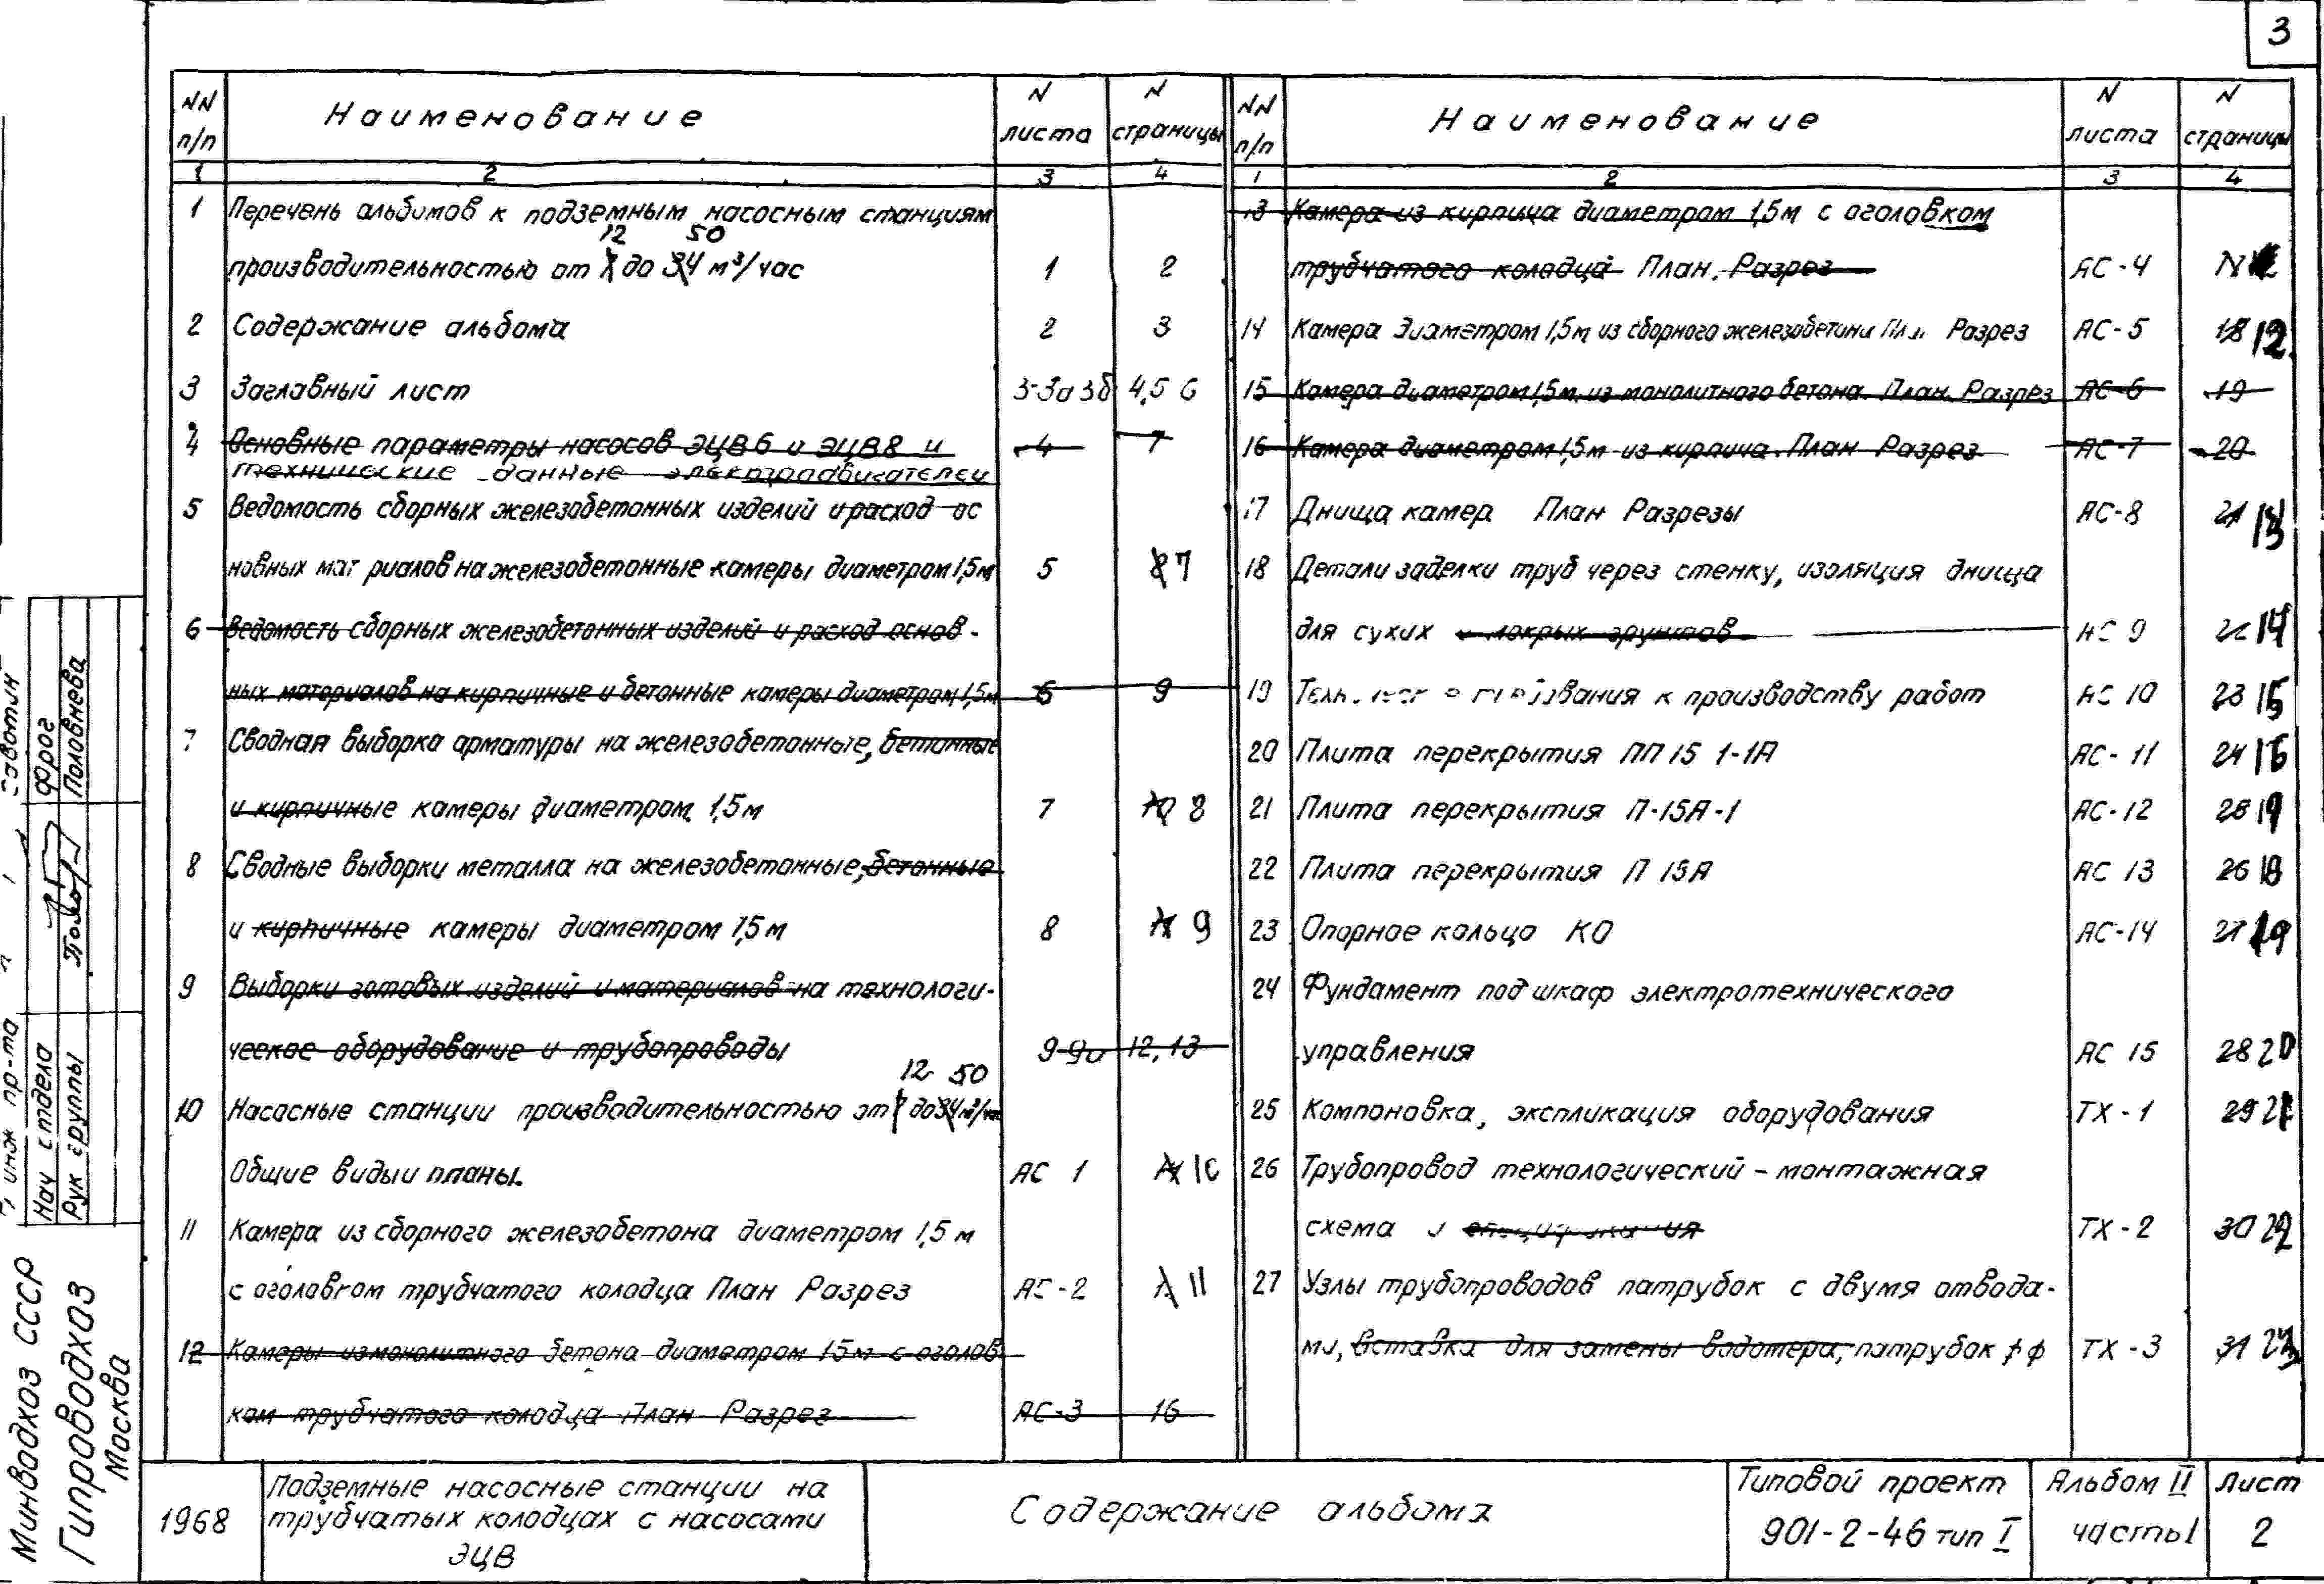 3
NN п/п Наименование N листа N страницы
1 2 3 4
1 Перечень альбомов к подземным насосным станциям
12 50
производительностью от 7 до 34 м³/час 1 2
2 Содержание альбома 2 3
3 Заглавный лист 3-3а 3б 4,5 6
4 Основные параметры насосов ЭЦВ6 и ЭЦВ8 и 4 7
технические данные электродвигателей
5 Ведомость сборных железобетонных изделий и расход ос
новных мат риалов на железобетонные камеры диаметром 1,5м 5 8 7
6 Ведомость сборных железобетонных изделий и расход основ-
ных материалов на кирпичные и бетонные камеры диаметром 1,5м 6 9
7 Сводная выборка арматуры на железобетонные, бетонные
и кирпичные камеры диаметром 1,5м 7 10 8
8 Сводные выборки металла на железобетонные, бетонные
и кирпичные камеры диаметром 1,5м 8 11 9
9 Выборки готовых изделий и материалов на технологи-
ческое оборудование и трубопроводы 9-9а 12,13
12 50
10 Насосные станции производительностью от 7 до 34 м³/час
Общие виды и планы. АС 1 10
11 Камера из сборного железобетона диаметром 1,5 м
с оголовком трубчатого колодца План Разрез АС-2 11
12 Камеры из монолитного бетона диаметром 1,5м с оголов
ком трубчатого колодца План Разрез АС-3 16
NN п/п Наименование N листа N страницы
1 2 3 4
13 Камера из кирпича диаметром 1,5м с оголовком
трубчатого колодца План. Разрез АС-4
14 Камера диаметром 1,5м из сборного железобетона Разрез АС-5 18 12
15 Камера диаметром 1,5м из монолитного бетона План. Разрез АС-6 19
16 Камера диаметром 1,5м из кирпича План Разрез АС-7 20
17 Днища камер План Разрезы АС-8 21 13
18 Детали заделки труб через стенку, изоляция днища
для сухих и мокрых грунтов АС 9 14
19 к производству работ АС 10 23 15
20 Плита перекрытия ПП 15 1-1А АС-11 24 16
21 Плита перекрытия П-15А-1 АС-12 25
22 Плита перекрытия П 15А АС 13 26 18
23 Опорное кольцо КО АС-14 27 19
24 Фундамент под шкаф электротехнического
управления АС 15 28 20
25 Компоновка, экспликация оборудования ТХ-1 29 21
26 Трубопровод технологический – монтажная
схема и ТХ-2 30 22
27 Узлы трубопроводов патрубок с двумя отвода-
ми, вставка для замены водомера, патрубок ф ТХ-3 31 23
пр-та
Нач отдела Фрог
Рук группы Половнева
Минводхоз СССР
Гипроводхоз
Москва
1968
Подземные насосные станции на
трубчатых колодцах с насосами
ЭЦВ
Содержание альбома
Типовой проект
901-2-46 тип I
Альбом II
часть 1
Лист
2